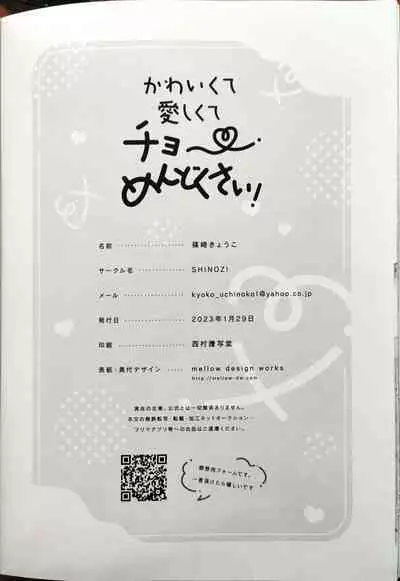 かわいくて
愛しくて
チョー
めんどくさい!
名前 篠崎きょうこ
サークル名 SHINOZI
メール kyoko_uchinoko1@yahoo.co.jp
発行日 2023年1月29日
印刷 西村謄写堂
表紙・奥付デザイン mellow design works
http://mellow-dw.com
実在の企業、公式とは一切関係ありません。
本文の無断転写・転載・加工ネットオークション・
フリマアプリ等への出品はご遠慮ください。
感想用フォームです。
一言頂けたら嬉しいです